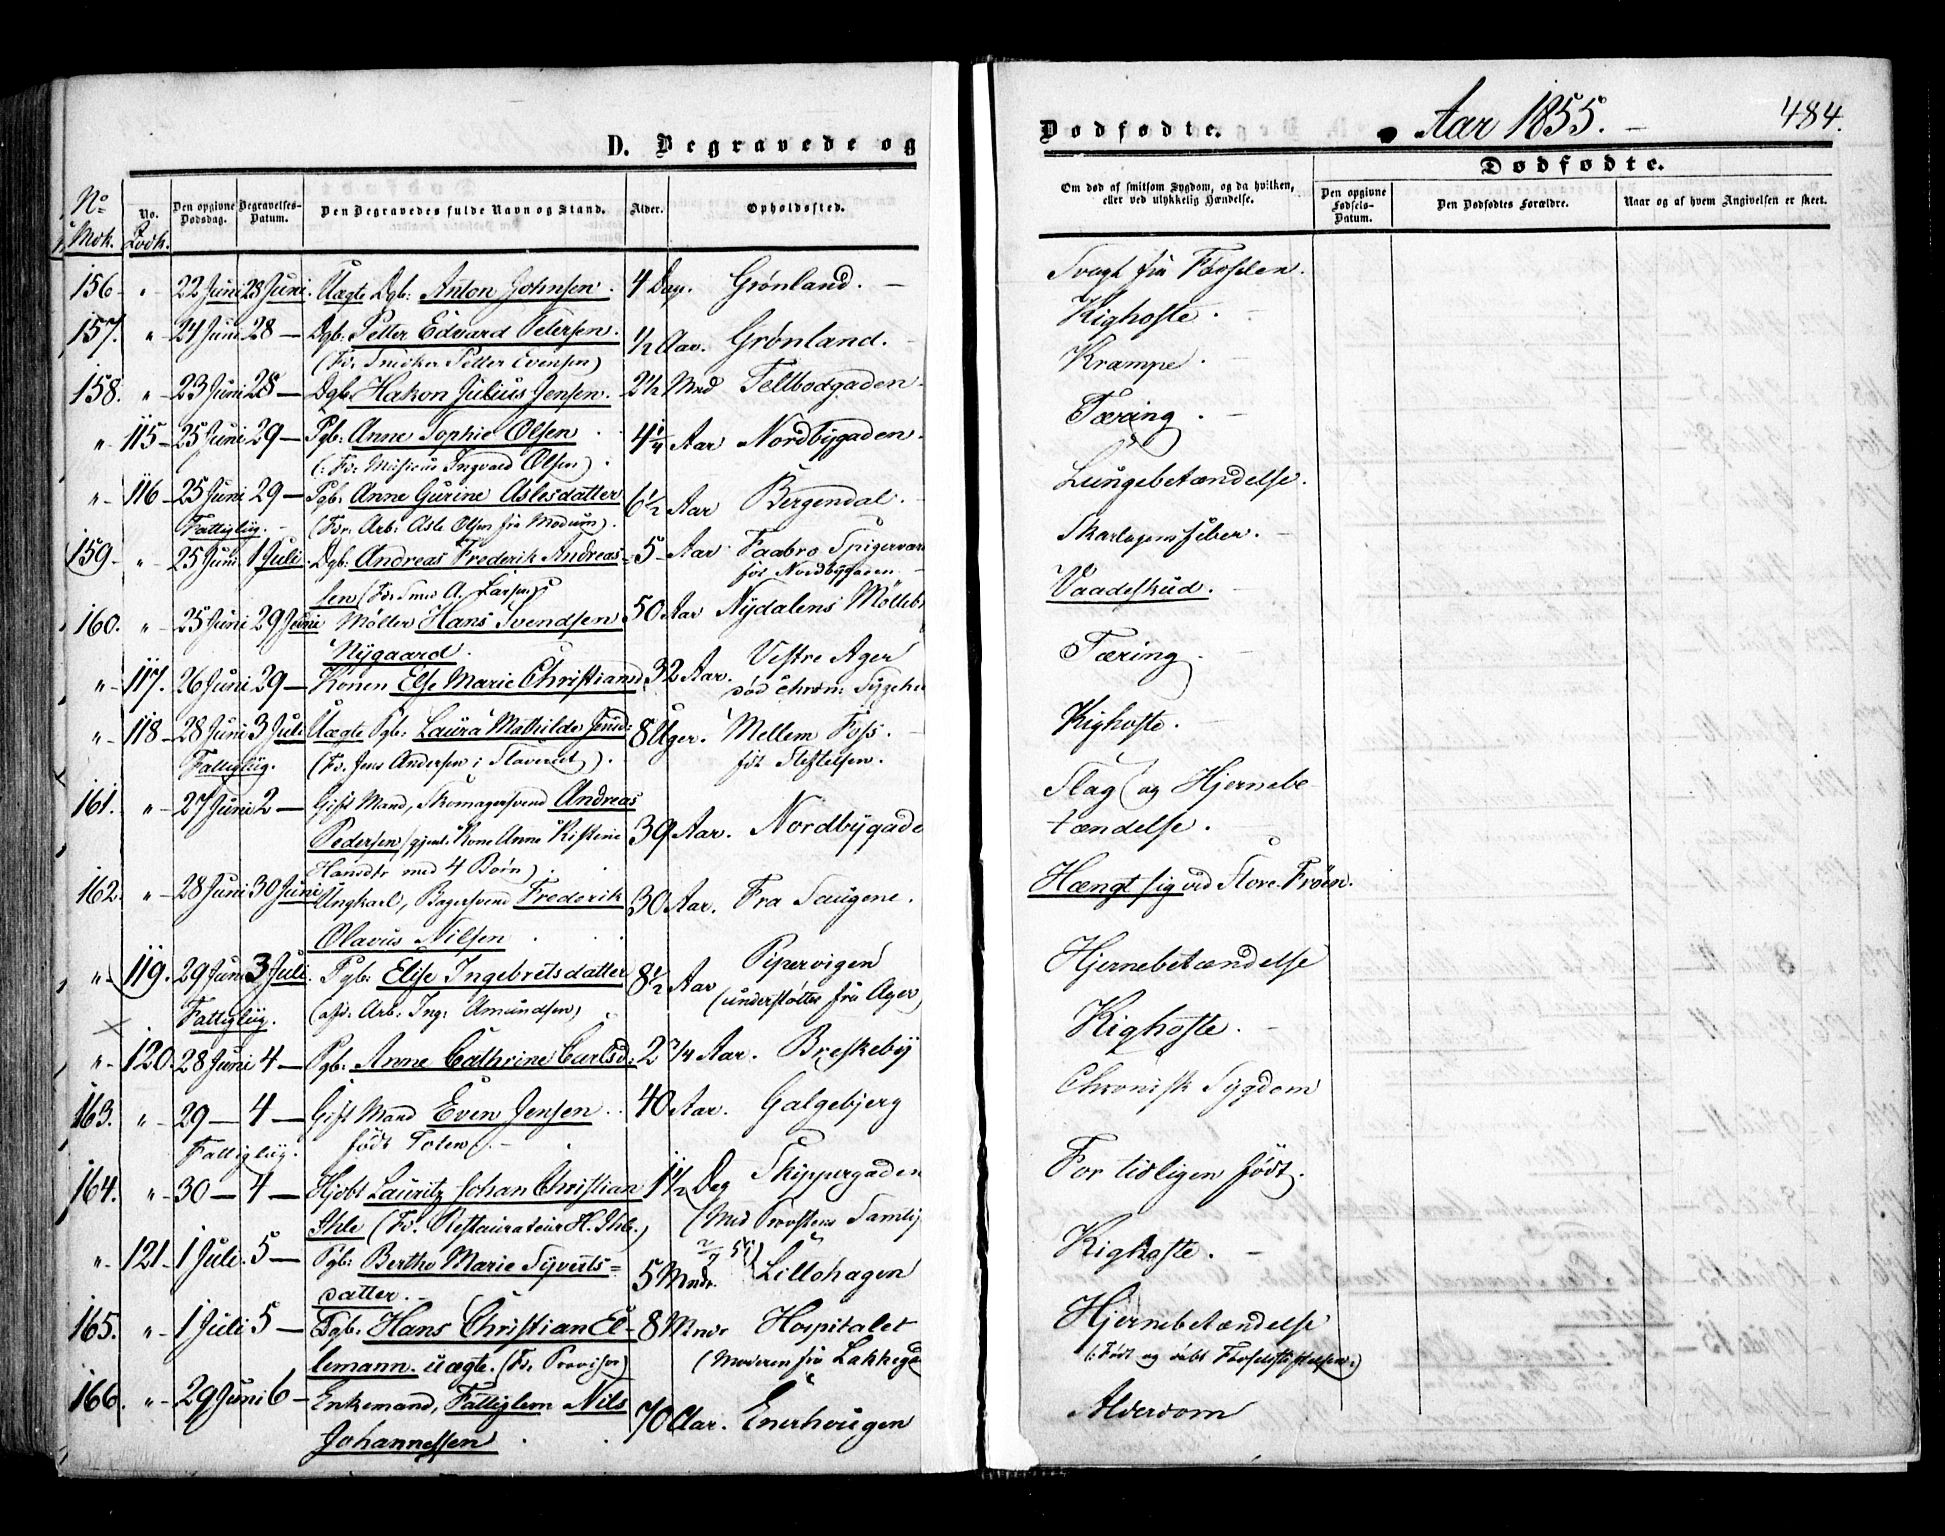 D. Begravede og
No Mdk. No. Qvdk. Den opgivne Dødsdag. Begravelses-Datum. Den Begravedes fulde Navn og Stand. Alder. Opholdssted.
156 - " 22 Juni 23 Juni. Uægte Dgb: Anton Johnsen. 4 Dag. Grønland. -
157. " 24 Juni 28 - Dgb: Petter Edvard Petersen. 1/2 Aar. Grønland. -
(Fr. Snedker Petter Evensen)
158. " - 23 Juni 28 - Dgb. Hakon Julius Jensen. 2 1/2 Mnd Toldbodgaden -
" 115 - 25 Juni 29 - Pgb: Anne Sophie Olsen 4 1/4 Aar Nordbygaden.
(: Fr. Musicus Ingvald Olsen).
" - 116 - 25 Juni 29 - Pgb: Anne Gurine Aslesdatter 6 1/2 Aar Bergendal. -
Fattigliig. - (Fdr: Arb: Asle Olsen fra Modum).
159. " - 25 Juni 1 Juli. Dgb: Andreas Frederik Andreas- 5 - Aar Faabro Spigerværk
sen (Fr. Smed A. Larsen) før Nordbygaden
160. " - 25 Juni 29 Juni Møller Hans Svendsen 50 Aar Nydalens Mølleb
Nygaard.
" - 117. 26 Juni 29 - Konen Else Marie Christiansd. 32 Aar. Vestre Ager
død Christn: Sygehu
" - 118 - 28 Juni 3 Juli Uægte Pgb: Laura Mathilde Jensd: 8 Uger. Mellem Foss. -
Fattigliig. (Fr. Jens Andersen i Slaveriet). før Stiftelsen.
161. " - 27 Juni 2 - Gift Mand, Skomagersvend Andreas
Pedersen (gjenl. Kone Anne Kistine 39 Aar. Nordbygade
Hansdtr med 4 Børn).
162. " - 28 Juni 30 Juni Ungkarl, Bagersvend Frederik 30 Aar. Fra Saugene.
Olavus Nilsen
" - 119. 29 Juni 3 Juli. Pgb: Elise Ingebretsdatter 8 1/2 Aar Pipervigen
Fattigliig. Arb: Ing: Amundsen) (understøttes fra Ager)
" - 120. 28 Juni 4 - Pgb: Anne Cathrine Carlsd: 2 3/4 Aar. Breskeby
163. " - 29 - 4 - Gift Mand Even Jensen. 40 Aar. Galgebjerg
Fattigliig. født Toten. -
164. " - 30 - 4 - Hjdbt Lauritz Johan Christian 1 1/2 Dag Skippergaden
Ihle (Fr. Restaurateur H. Ihle.) (Med Provstens Samty
" 121 - 1 Juli. 5 - Pgb: Berthe Marie Syverts= 2/7 55)
datter. - 5 Mndr. Lillohagen
165. " - 1 Juli 5 - Dgb. Hans Christian El- 8 Mndr Hospitalet
lemann. uægte. (Fr. Provisor) (Moderen fra Lakkega
166. " - 29 Juni 6 - Enkemand, Fattiglem Nils 70 Aar. Enerhougen
Johannessen
Dødfødte. Aar 1855. - 484.
Dødfødte.
Om død af smitsom Sygdom, og da hvilken, eller ved ulykkelig Hændelse. Den opgivne Fødsels-Datum. Den Dødfødtes Forældre. Naar og af hvem Angivelsen er skeet.
Svagt fra Fødselen.
Kighoste.
Krampe.
Tæring. -
Lungebetændelse.
Skarlagensfeber.
Vaadeskud.
Tæring.
Kighoste.
Slag og Hjernebe
tændelse.
Hængt sig ved Store Frøen.
Hjernebetændelse
Kighoste. -
Chronisk Sygdom
For tidligen født.
Kighoste. -
Hjernebetændelse
(: Født og døbt Fødselsstiftelsen:)
Alderdom